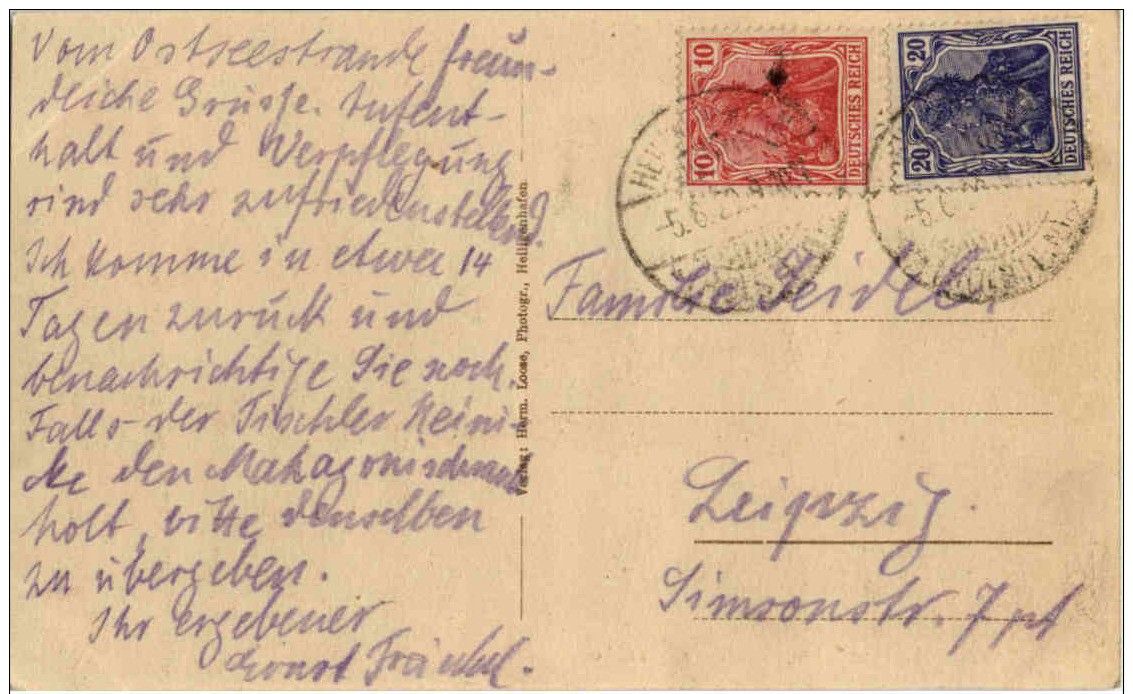 Vom Ostseestrande freun-
dliche Grüsse. Aufent-
halt und Verpflegung
sind sehr zufriedenstellend.
Ich komme in etwa 14
Tagen zurück und
benachrichtige Sie noch.
Falls der Tischler Heini-
cke den Mahagonischrank
holt, bitte denselben
zu übergeben.
Ihr ergebener
Ernst Fränkel.
Verlag: Herm. Loose, Photogr., Heiligenhafen
10 10 DEUTSCHES REICH
20 20 DEUTSCHES REICH
-5.6.
-5.6.
Familie Seidel
Leipzig.
Simsonstr. 7 pt